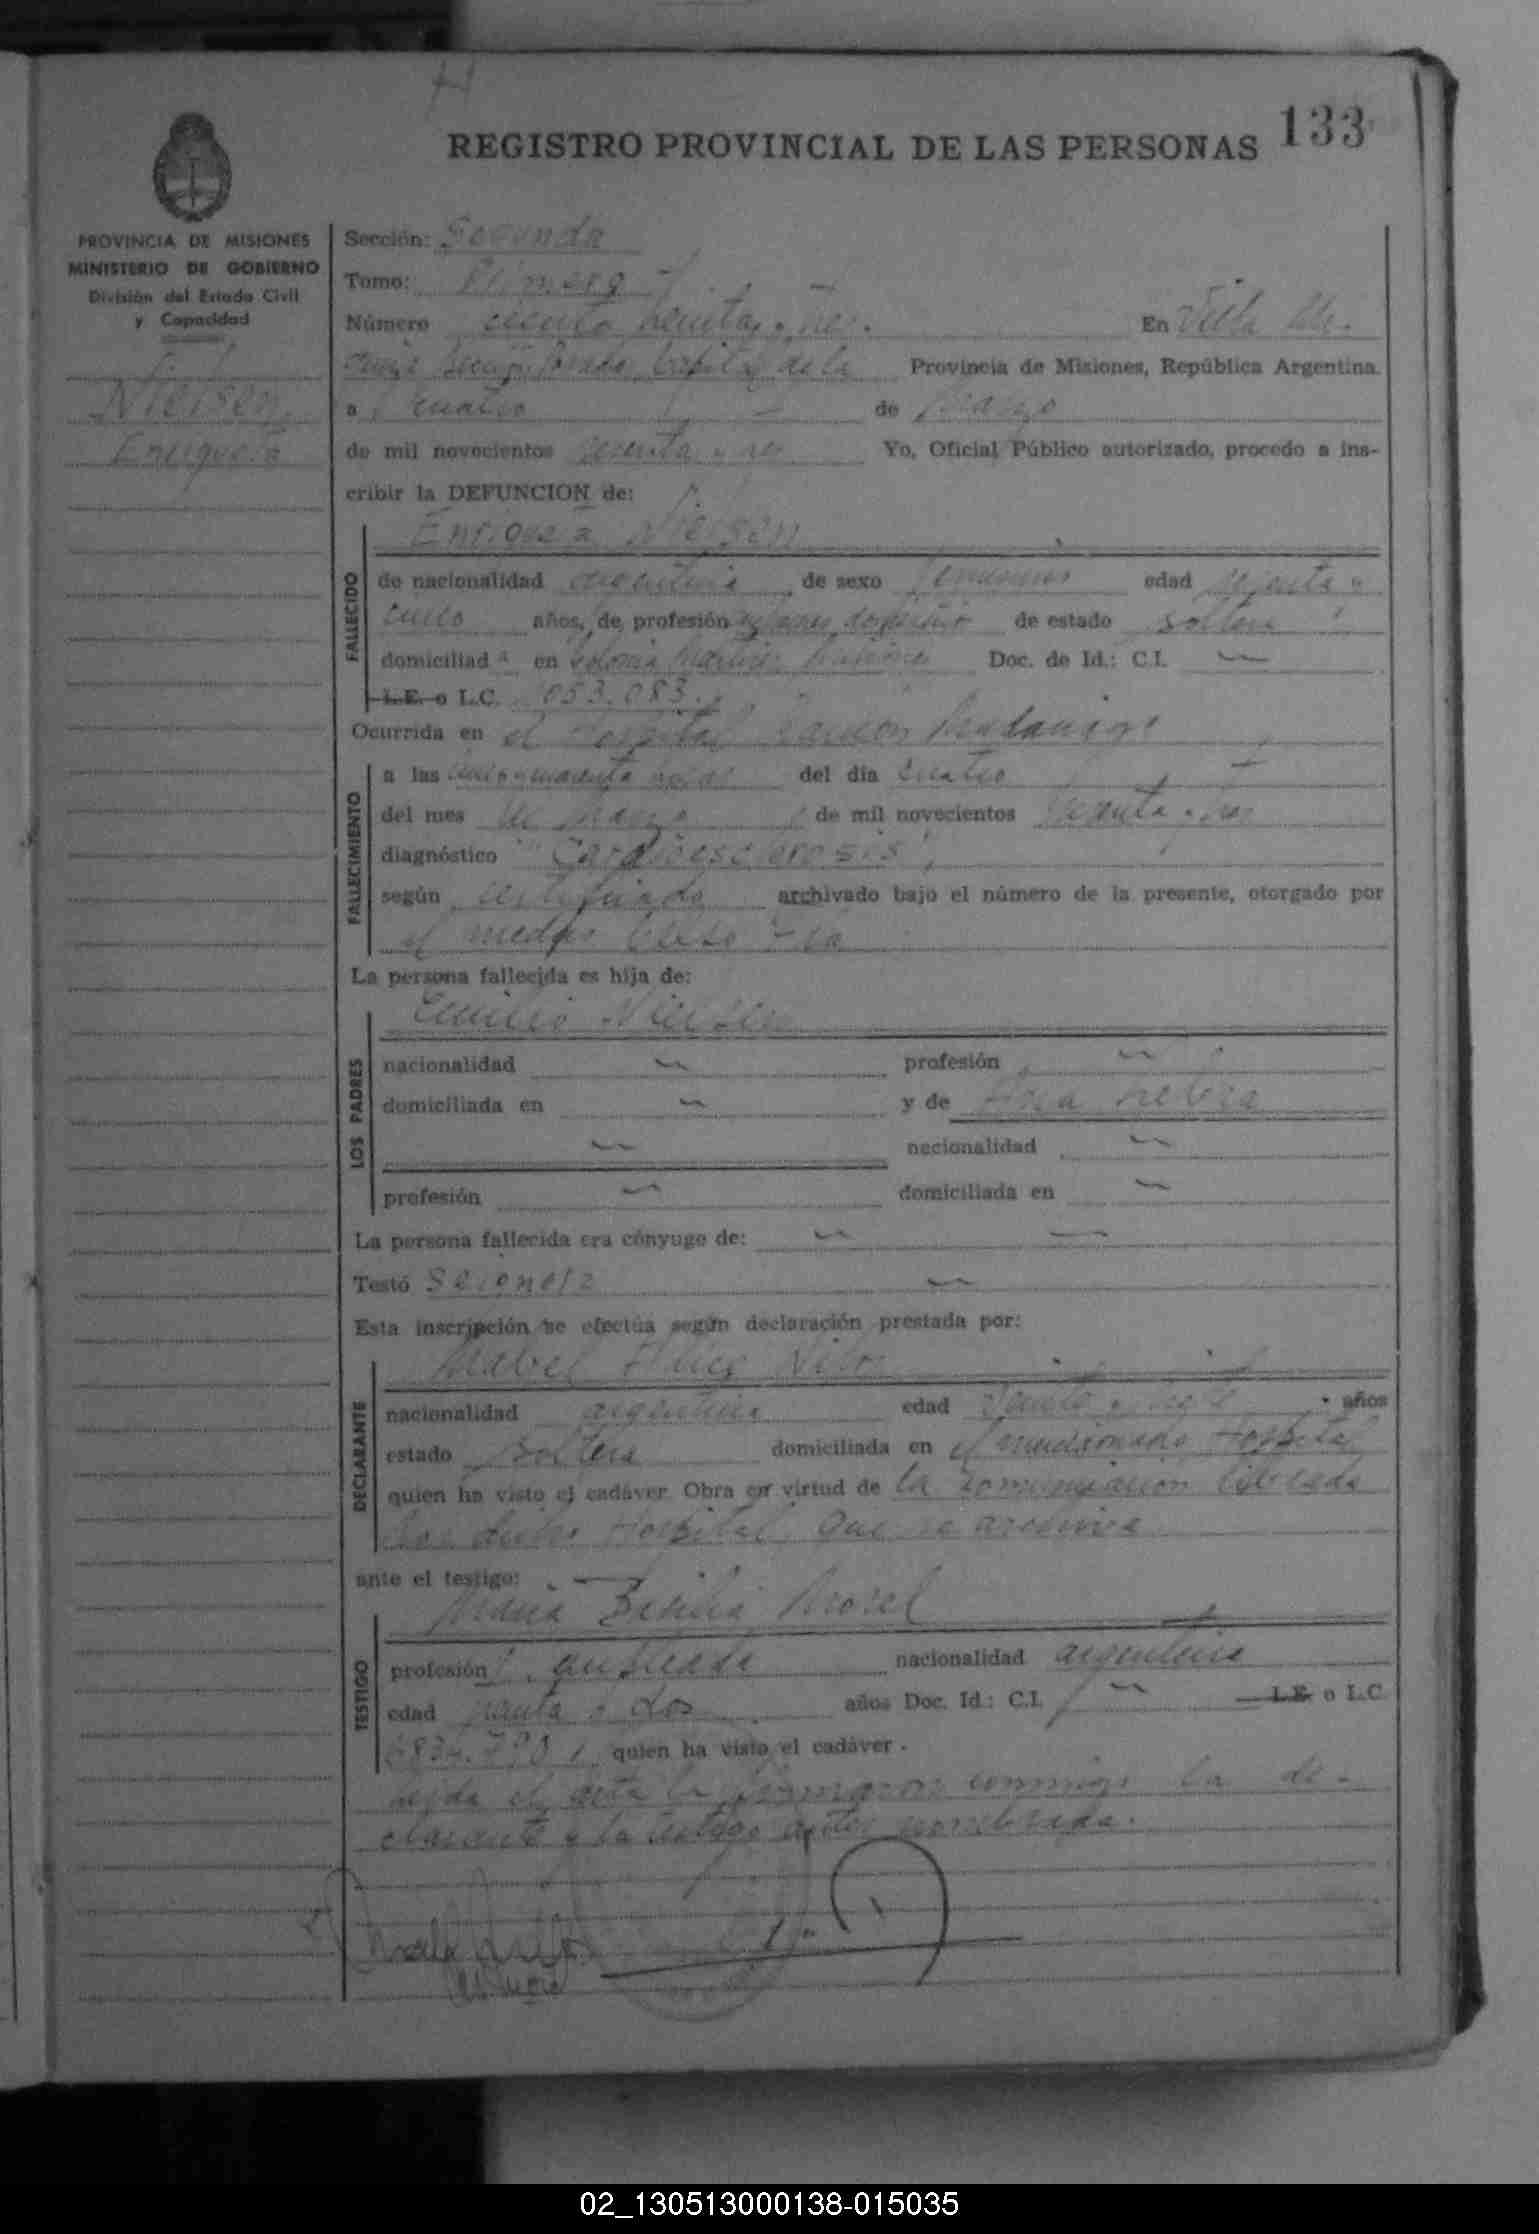 133
REGISTRO PROVINCIAL DE LAS PERSONAS
PROVINCIA DE MISIONES
MINISTERIO DE GOBIERNO
División del Estado Civil
y Capacidad
Nielsen
Enriqueta
Sección: Segunda
Tomo: Primero
Número ciento treinta y tres. En Villa
Capital de la Provincia de Misiones, República Argentina.
a cuatro de Marzo
de mil novecientos sesenta y tres Yo, Oficial Público autorizado, procedo a ins-
cribir la DEFUNCION de:
Enriqueta Nielsen
FALLECIDO
de nacionalidad argentina de sexo femenino edad sesenta y
cinco años, de profesión de estado soltera
domiciliada en Colonia Martires Misiones Doc. de Id.: C.I. —
L.E. o L.C. 053.083.
Ocurrida en el Hospital Ramón Madariaga
FALLECIMIENTO
a las horas del día cuatro
del mes de Marzo de mil novecientos sesenta y tres
diagnóstico "Cardioesclerosis",
según certificado archivado bajo el número de la presente, otorgado por
el médico
La persona fallecida es hija de:
Emilio Nielsen
LOS PADRES
nacionalidad — profesión —
domiciliada en — y de Ana
— nacionalidad —
profesión — domiciliada en —
La persona fallecida era cónyuge de: — —
Testó Se ignora —
Esta inscripción se efectúa según declaración prestada por:
Mabel
DECLARANTE
nacionalidad argentina edad años
estado soltera domiciliada en el mencionado Hospital
quien ha visto el cadáver. Obra en virtud de la comunicación librada
por dicho Hospital que se archiva
ante el testigo:
María Basilia Morel
TESTIGO
profesión empleada nacionalidad argentina
edad treinta y dos años Doc. Id.: C.I. — L.E. o L.C.
quien ha visto el cadáver.
Leída el acta la firmaron conmigo la de-
clarante y la testigo antes nombrada.
02_130513000138-015035